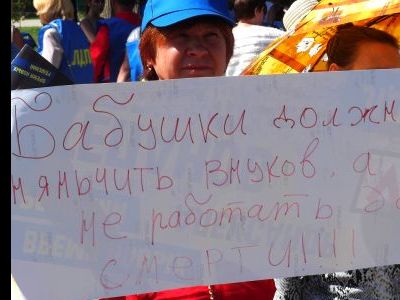 Бабушки должн
нянчить внуков, а
не работать до
смерти!!!!
ЛДП